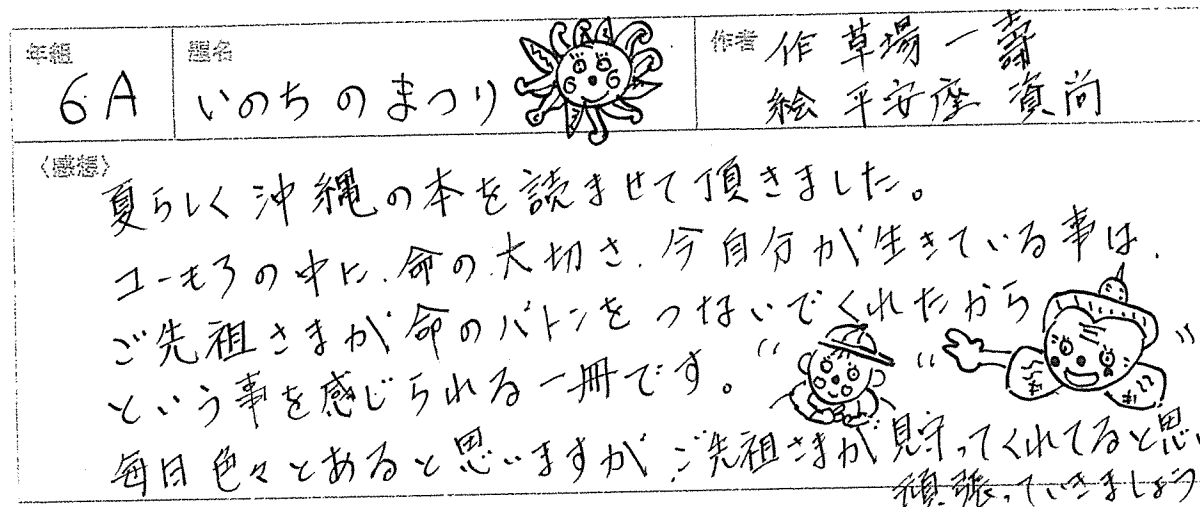 年組 題名 作者
6A いのちのまつり 作 草場 一壽
絵 平安座 資尚
〈感想〉
夏らしく沖縄の本を読ませて頂きました。
ユーモアの中に、命の大切さ、今自分が生きている事は、
ご先祖さまが命のバトンをつないでくれたから
という事を感じられる一冊です。
毎日色々とあると思いますが、ご先祖さまが見守ってくれてると思い
頑張っていきましょう